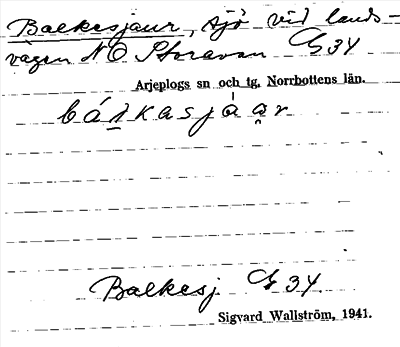 Balkesjaur, sjö vid lands-
vägen NO Storavan G 34
Arjeplogs sn och tg, Norrbottens län.
bálkasjáạr
Balkesj G 34.
Sigvard Wallström, 1941.